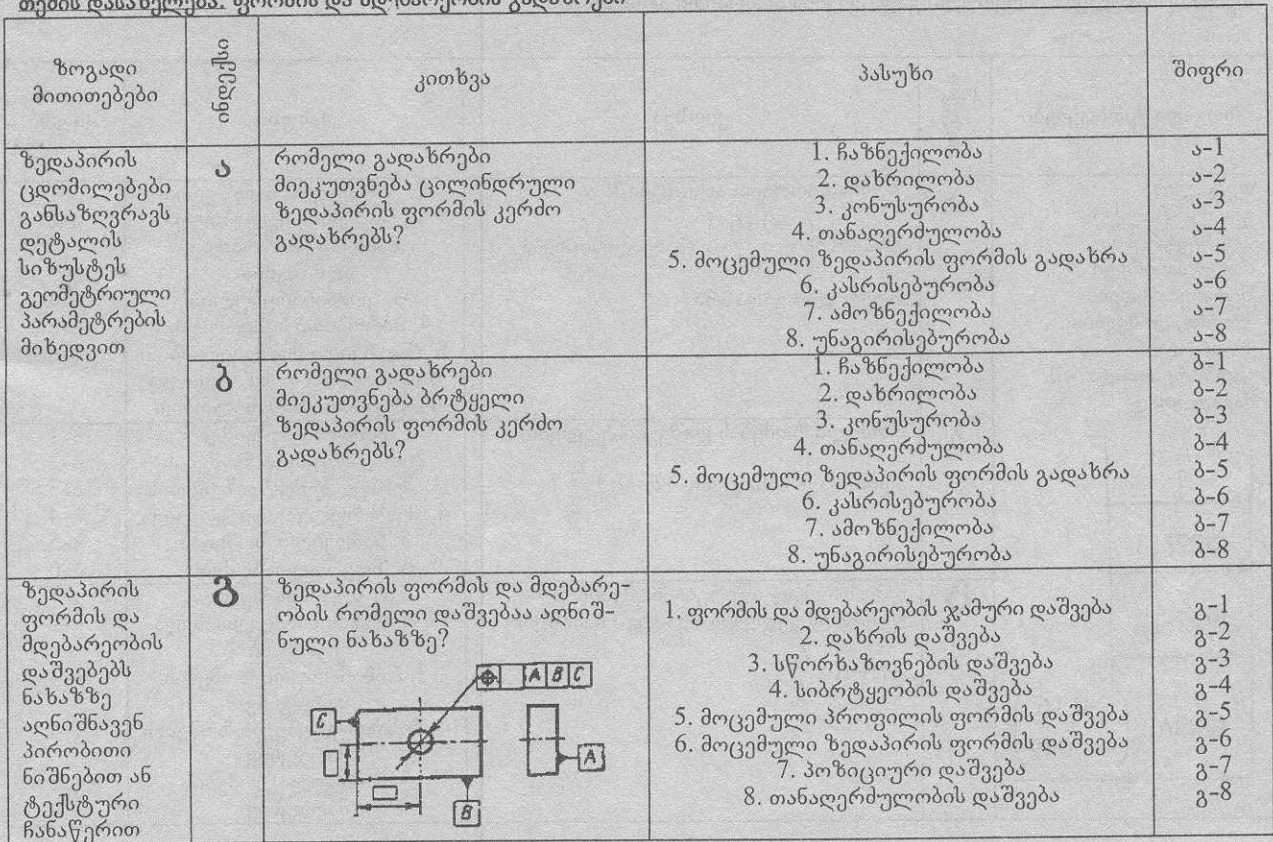 თემის დასახელება: ფორმის და მდებარეობის გადახრები
ზოგადი
მითითებები
ინდექსი
კითხვა
პასუხი
შიფრი
ზედაპირის
ცდომილებები
განსაზღვრავს
დეტალის
სიზუსტეს
გეომეტრიული
პარამეტრების
მიხედვით
ა
რომელი გადახრები
მიეკუთვნება ცილინდრული
ზედაპირის ფორმის კერძო
გადახრებს?
1. ჩაზნექილობა ა-1
2. დახრილობა ა-2
3. კონუსურობა ა-3
4. თანაღერძულობა ა-4
5. მოცემული ზედაპირის ფორმის გადახრა ა-5
6. კასრისებურობა ა-6
7. ამოზნექილობა ა-7
8. უნაგირისებურობა ა-8
ბ
რომელი გადახრები
მიეკუთვნება ბრტყელი
ზედაპირის ფორმის კერძო
გადახრებს?
1. ჩაზნექილობა ბ-1
2. დახრილობა ბ-2
3. კონუსურობა ბ-3
4. თანაღერძულობა ბ-4
5. მოცემული ზედაპირის ფორმის გადახრა ბ-5
6. კასრისებურობა ბ-6
7. ამოზნექილობა ბ-7
8. უნაგირისებურობა ბ-8
ზედაპირის
ფორმის და
მდებარეობის
დაშვებებს
ნახაზზე
აღნიშნავენ
პირობითი
ნიშნებით ან
ტექსტური
ჩანაწერით
გ
ზედაპირის ფორმის და მდებარე-
ობის რომელი დაშვებაა აღნიშ-
ნული ნახაზზე?
A B C
C
A
B
1. ფორმის და მდებარეობის ჯამური დაშვება გ-1
2. დახრის დაშვება გ-2
3. სწორხაზოვნების დაშვება გ-3
4. სიბრტყეობის დაშვება გ-4
5. მოცემული პროფილის ფორმის დაშვება გ-5
6. მოცემული ზედაპირის ფორმის დაშვება გ-6
7. პოზიციური დაშვება გ-7
8. თანაღერძულობის დაშვება გ-8